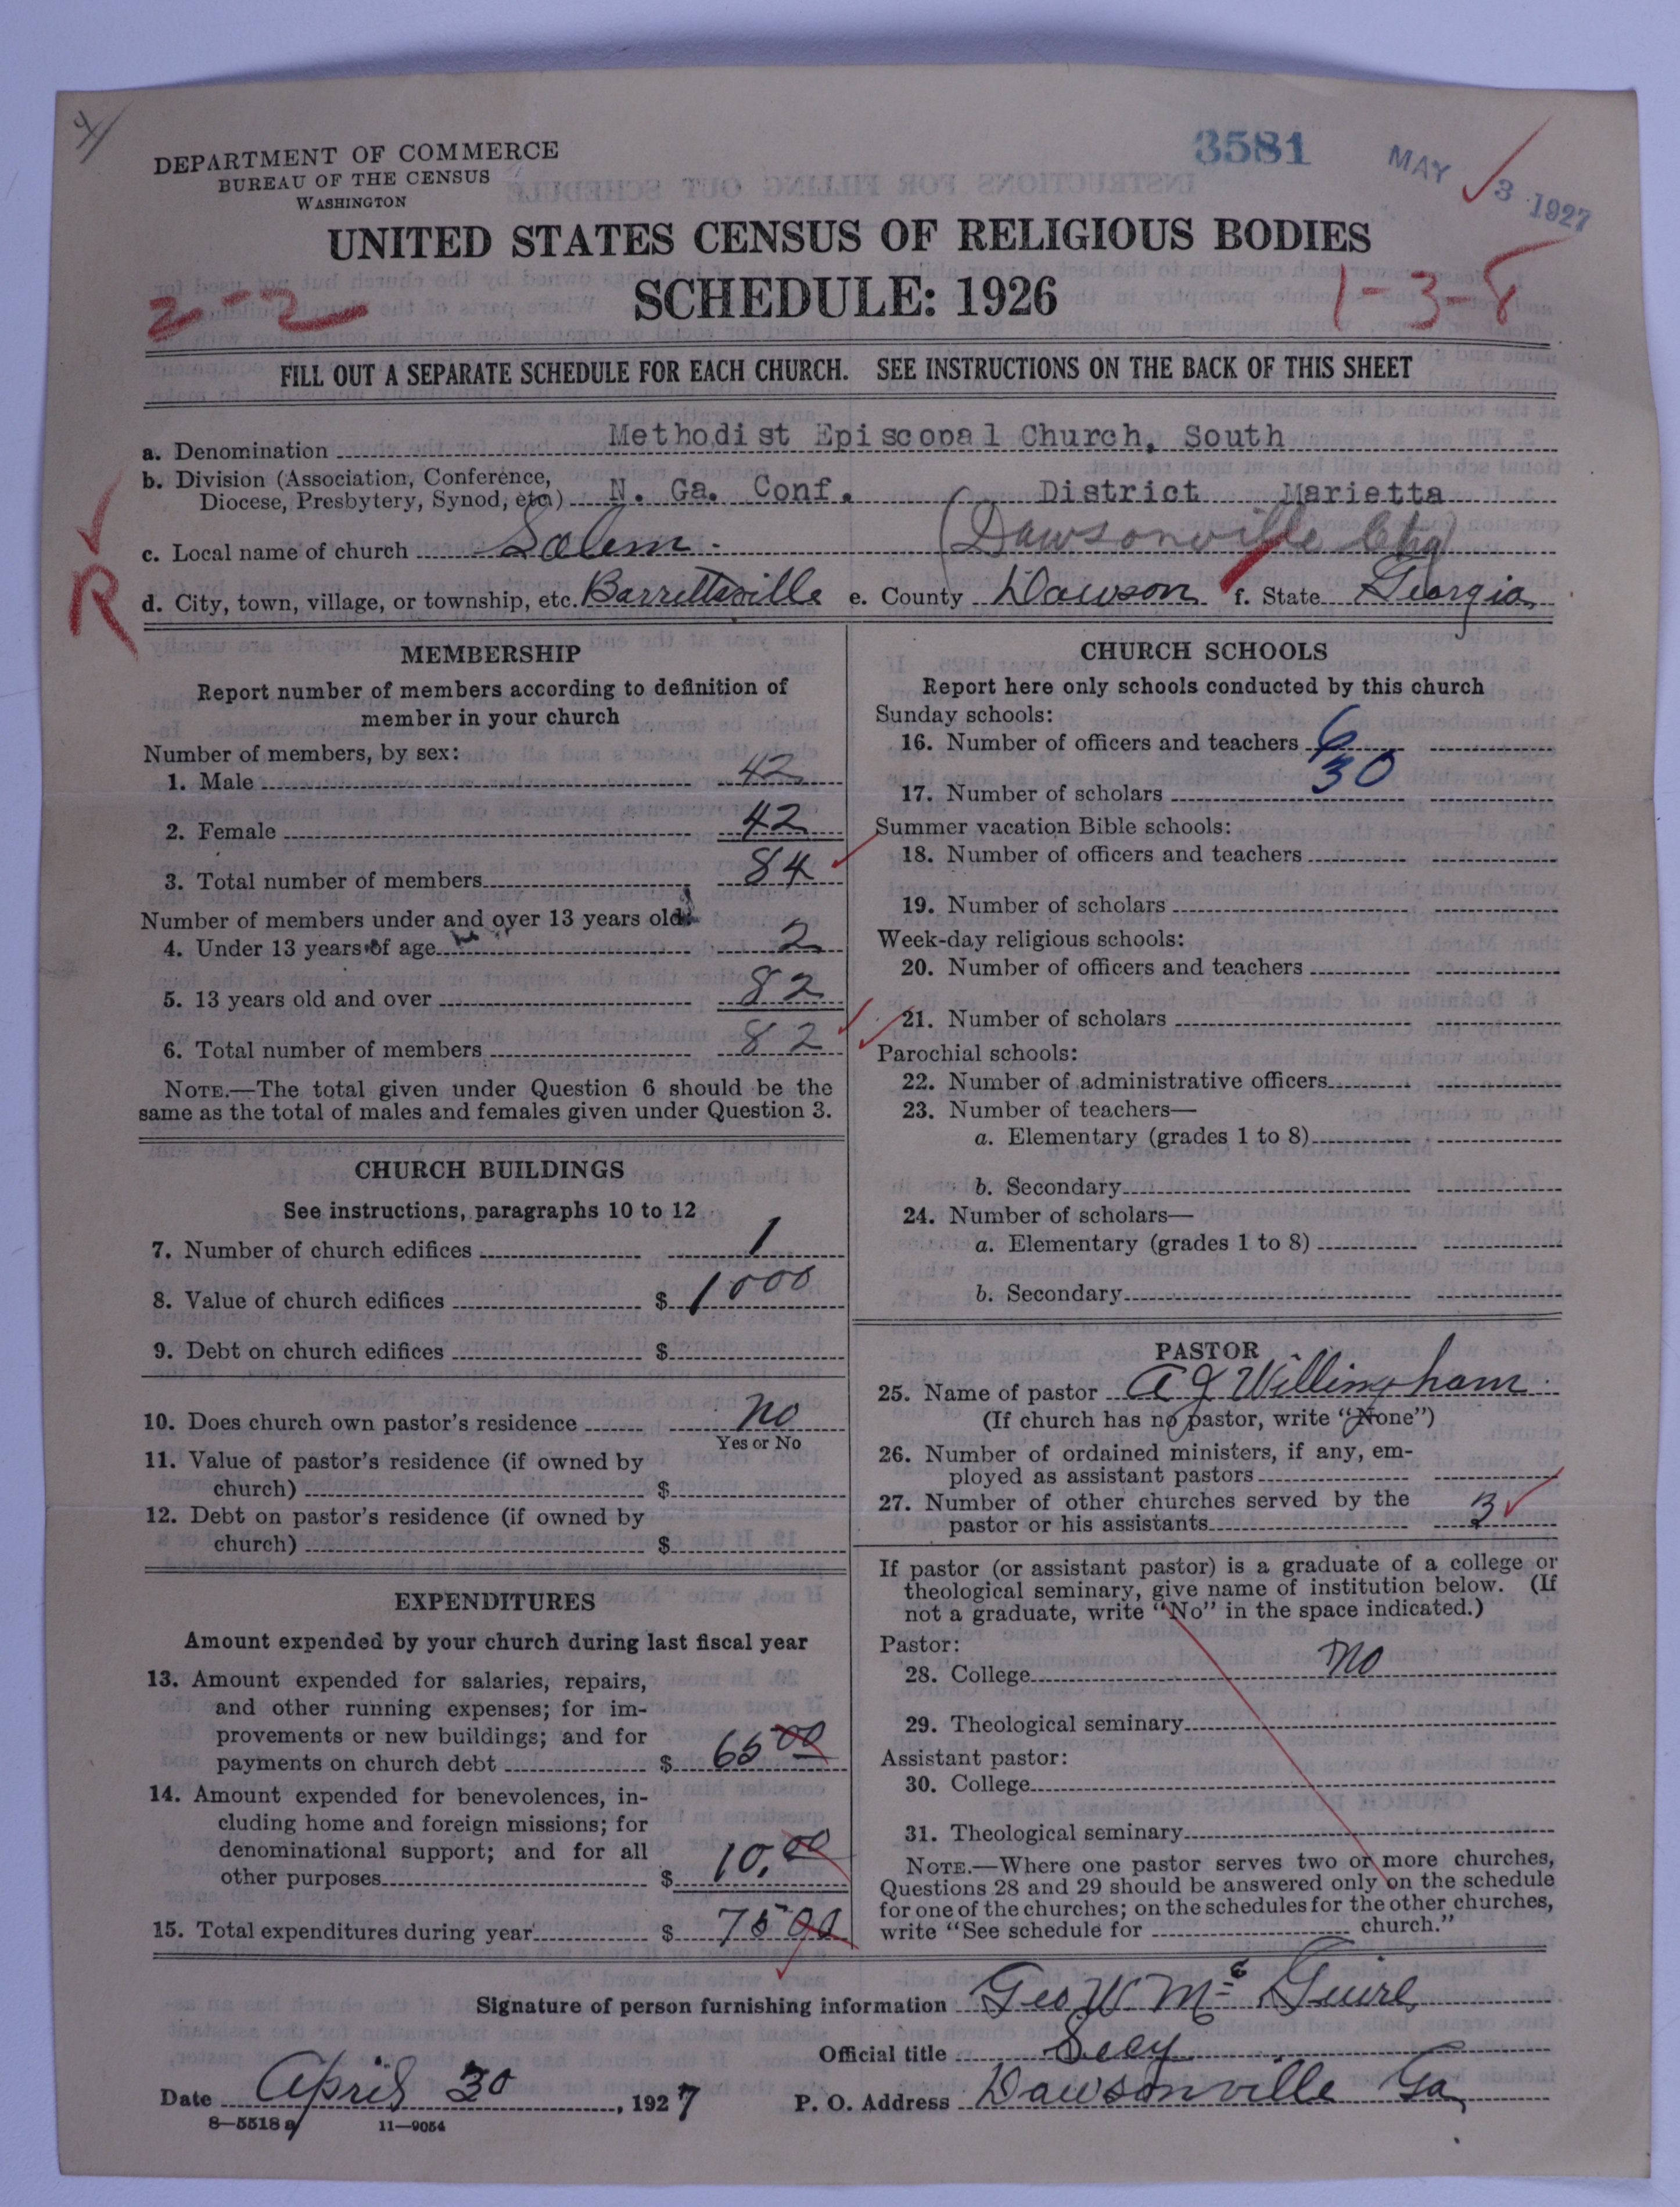 4
DEPARTMENT OF COMMERCE
BUREAU OF THE CENSUS
WASHINGTON
3581
MAY 3 1927
UNITED STATES CENSUS OF RELIGIOUS BODIES
SCHEDULE: 1926
2-2
1-3-8
FILL OUT A SEPARATE SCHEDULE FOR EACH CHURCH. SEE INSTRUCTIONS ON THE BACK OF THIS SHEET
a. Denomination Methodist Episcopal Church, South
b. Division (Association, Conference,
Diocese, Presbytery, Synod, etc.) N. Ga. Conf. District Marietta
c. Local name of church Salem. (Dawsonville Chg)
R
d. City, town, village, or township, etc. Barrettsville e. County Dawson f. State Georgia
MEMBERSHIP
Report number of members according to definition of
member in your church
Number of members, by sex:
1. Male 42
2. Female 42
3. Total number of members 84
Number of members under and over 13 years old:
4. Under 13 years of age 2
5. 13 years old and over 82
6. Total number of members 82
NOTE.—The total given under Question 6 should be the
same as the total of males and females given under Question 3.
CHURCH BUILDINGS
See instructions, paragraphs 10 to 12
7. Number of church edifices 1
8. Value of church edifices $ 1000
9. Debt on church edifices $
10. Does church own pastor's residence No
Yes or No
11. Value of pastor's residence (if owned by
church) $
12. Debt on pastor's residence (if owned by
church) $
EXPENDITURES
Amount expended by your church during last fiscal year
13. Amount expended for salaries, repairs,
and other running expenses; for im-
provements or new buildings; and for
payments on church debt $ 65 00
14. Amount expended for benevolences, in-
cluding home and foreign missions; for
denominational support; and for all
other purposes $ 10.00
15. Total expenditures during year $ 75 00
CHURCH SCHOOLS
Report here only schools conducted by this church
Sunday schools:
16. Number of officers and teachers 6
17. Number of scholars 30
Summer vacation Bible schools:
18. Number of officers and teachers
19. Number of scholars
Week-day religious schools:
20. Number of officers and teachers
21. Number of scholars
Parochial schools:
22. Number of administrative officers
23. Number of teachers—
a. Elementary (grades 1 to 8)
b. Secondary
24. Number of scholars—
a. Elementary (grades 1 to 8)
b. Secondary
PASTOR
25. Name of pastor A J Willingham
(If church has no pastor, write "None")
26. Number of ordained ministers, if any, em-
ployed as assistant pastors
27. Number of other churches served by the
pastor or his assistants 3
If pastor (or assistant pastor) is a graduate of a college or
theological seminary, give name of institution below. (If
not a graduate, write "No" in the space indicated.)
Pastor:
28. College No
29. Theological seminary
Assistant pastor:
30. College
31. Theological seminary
NOTE.—Where one pastor serves two or more churches,
Questions 28 and 29 should be answered only on the schedule
for one of the churches; on the schedules for the other churches,
write "See schedule for church."
Signature of person furnishing information Geo W. Mc Guire
Official title Secy
Date April 30, 1927 P. O. Address Dawsonville Ga
8—5518 a 11—9054